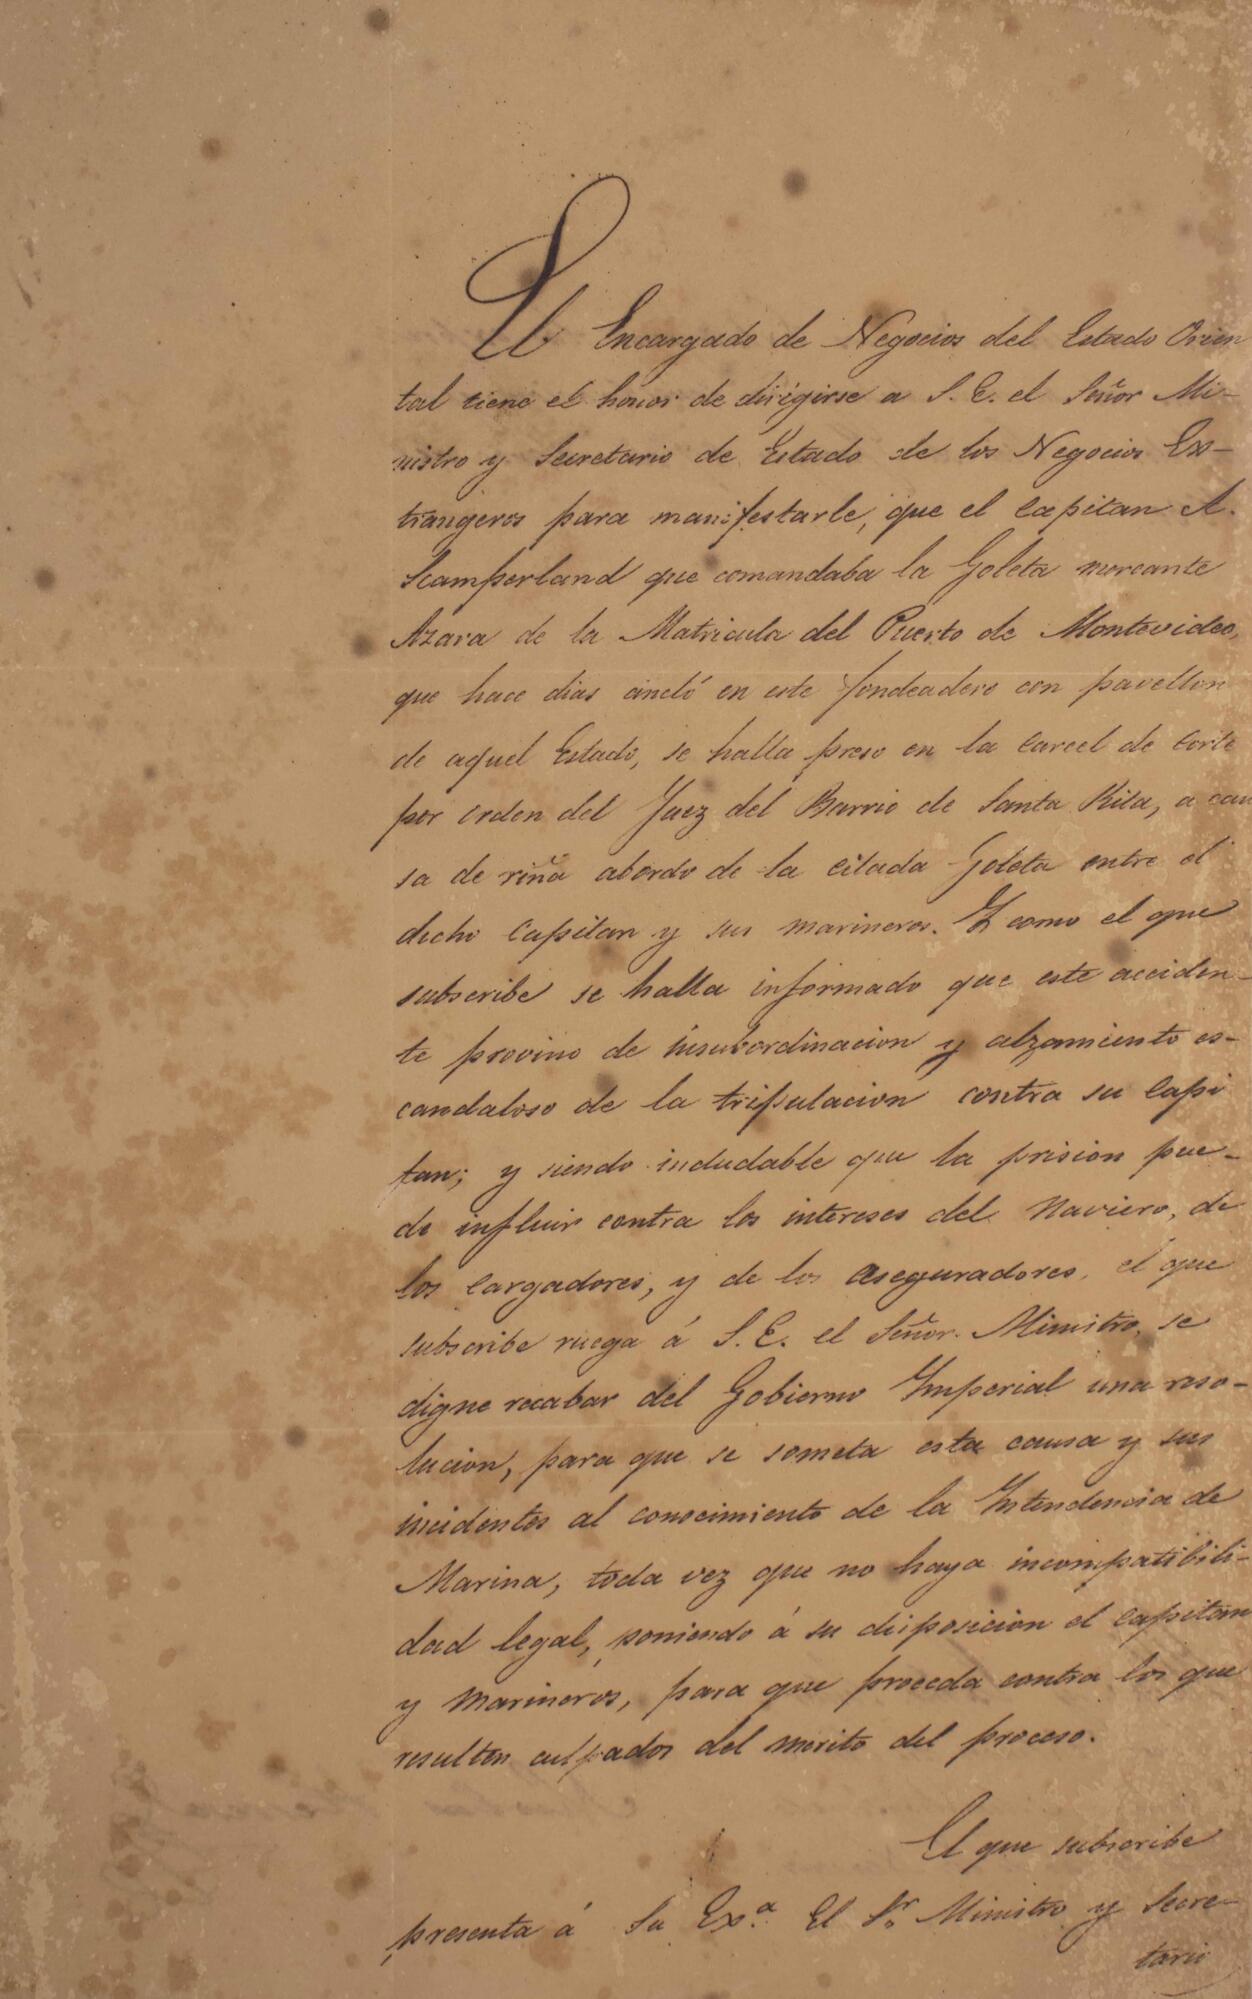 El Encargado de Negocios del Estado Orien
tal tiene el honor de dirigirse a S. E. el Señor Mi-
nistro y Secretario de Estado de los Negocios Ex-
trangeros para manifestarle, que el capitan A.
Scamperland que comandaba la Goleta mercante
Azara de la Matricula del Puerto de Montevideo,
que hace dias ancló en este fondeadero con pavellon
de aquel Estado, se halla preso en la carcel de corte
por orden del Juez del Barrio de Santa Rita, a cau
sa de riña abordo de la citada Goleta entre el
dicho Capitan y sus marineros. Y como el que
subscribe se halla informado que este acciden-
te provino de insubordinacion y alzamiento es-
candaloso de la tripulacion contra su Capi
tan; y siendo indudable que la prision pue-
de influir contra los intereses del Naviero, de
los cargadores, y de los aseguradores, el que
subscribe ruega á S. E. el Señor Ministro, se
digne recabar del Gobierno Imperial una reso-
lucion, para que se someta esta causa y sus
incidentes al conocimiento de la Intendencia de
Marina, toda vez que no haya incompatibili-
dad legal, poniendo á su disposicion el capitan
y marineros, para que proceda contra los que
resulten culpados del merito del proceso.
El que subscribe
presenta á Su Exa. El Sr. Ministro y Secre-
tario